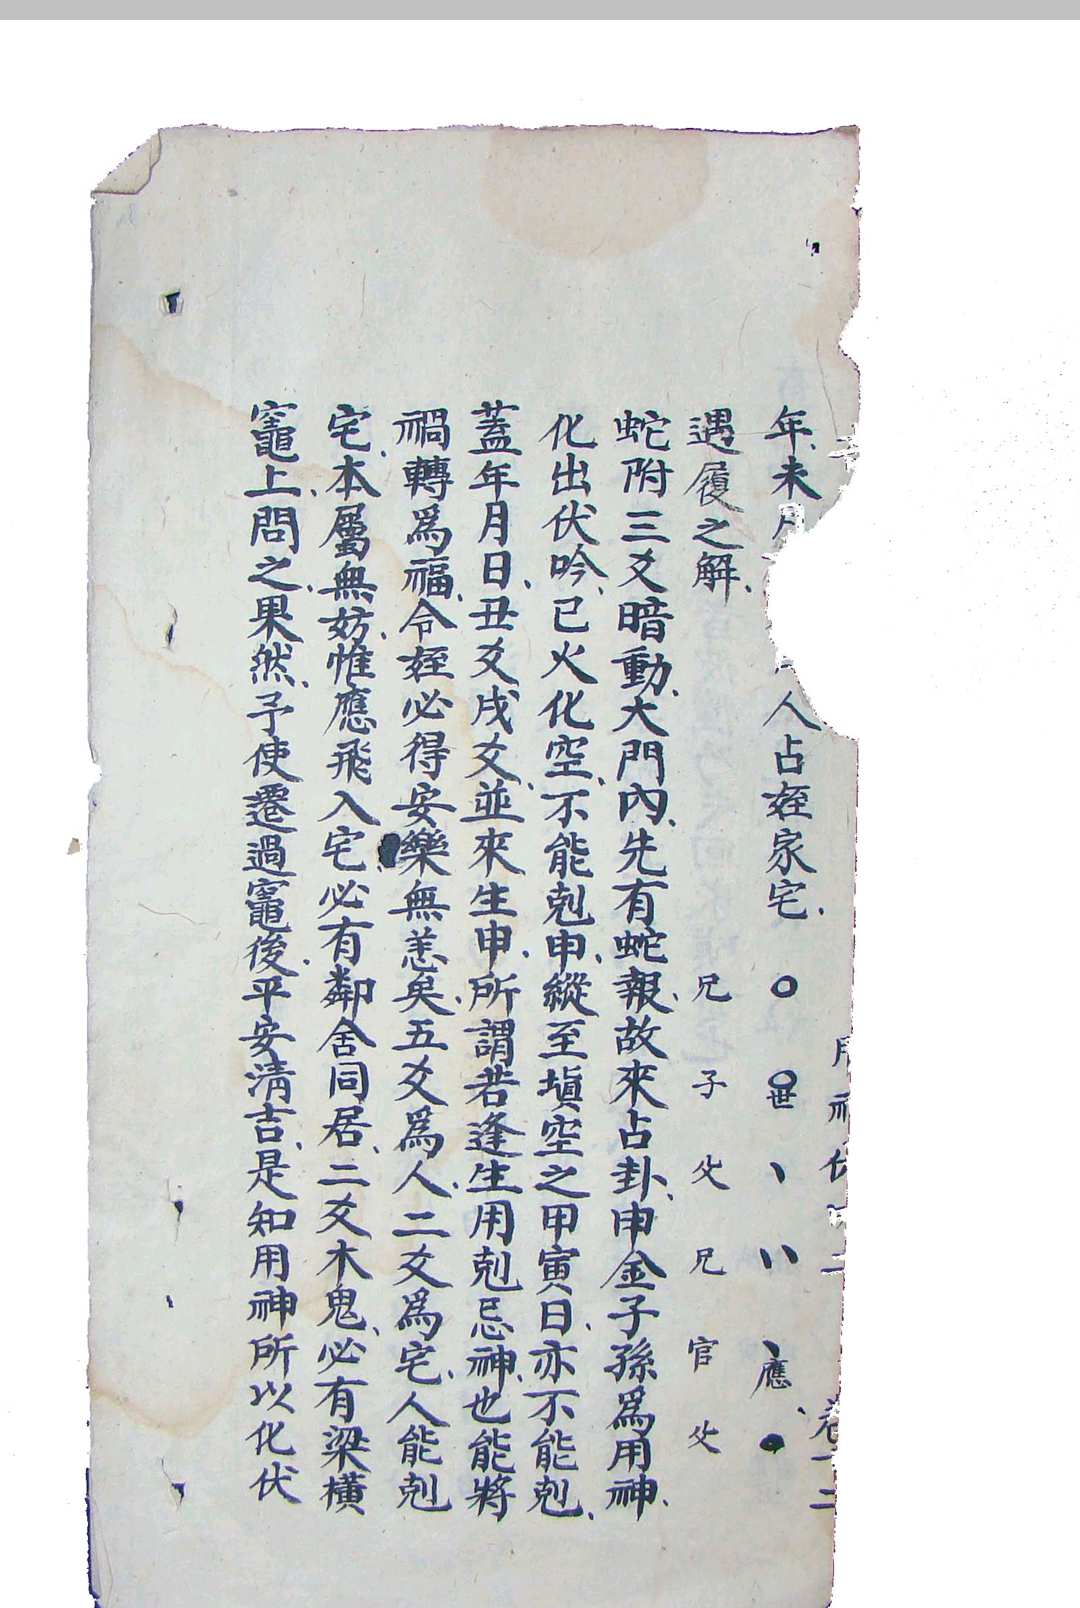 年、未月
人占姪家宅、
世
應
遇履之解、
兄 子 父 兄 官 父
蛇附三爻暗動、大門內、先有蛇報、故來占卦、申金子孫爲用神、
化出伏吟、巳火化空、不能剋申、縱至塡空之甲寅日、亦不能剋、
蓋年月日、丑爻戌爻、並來生申、所謂若逢生用剋忌神、也能將
禍轉爲福、令姪必得安樂無恙矣、五爻爲人、二爻爲宅、人能剋
宅、本屬無妨、惟應飛入宅、必有鄰舍同居、二爻木鬼、必有梁橫
竈上、問之、果然、予使遷過竈後、平安淸吉、是知用神所以化伏
卷